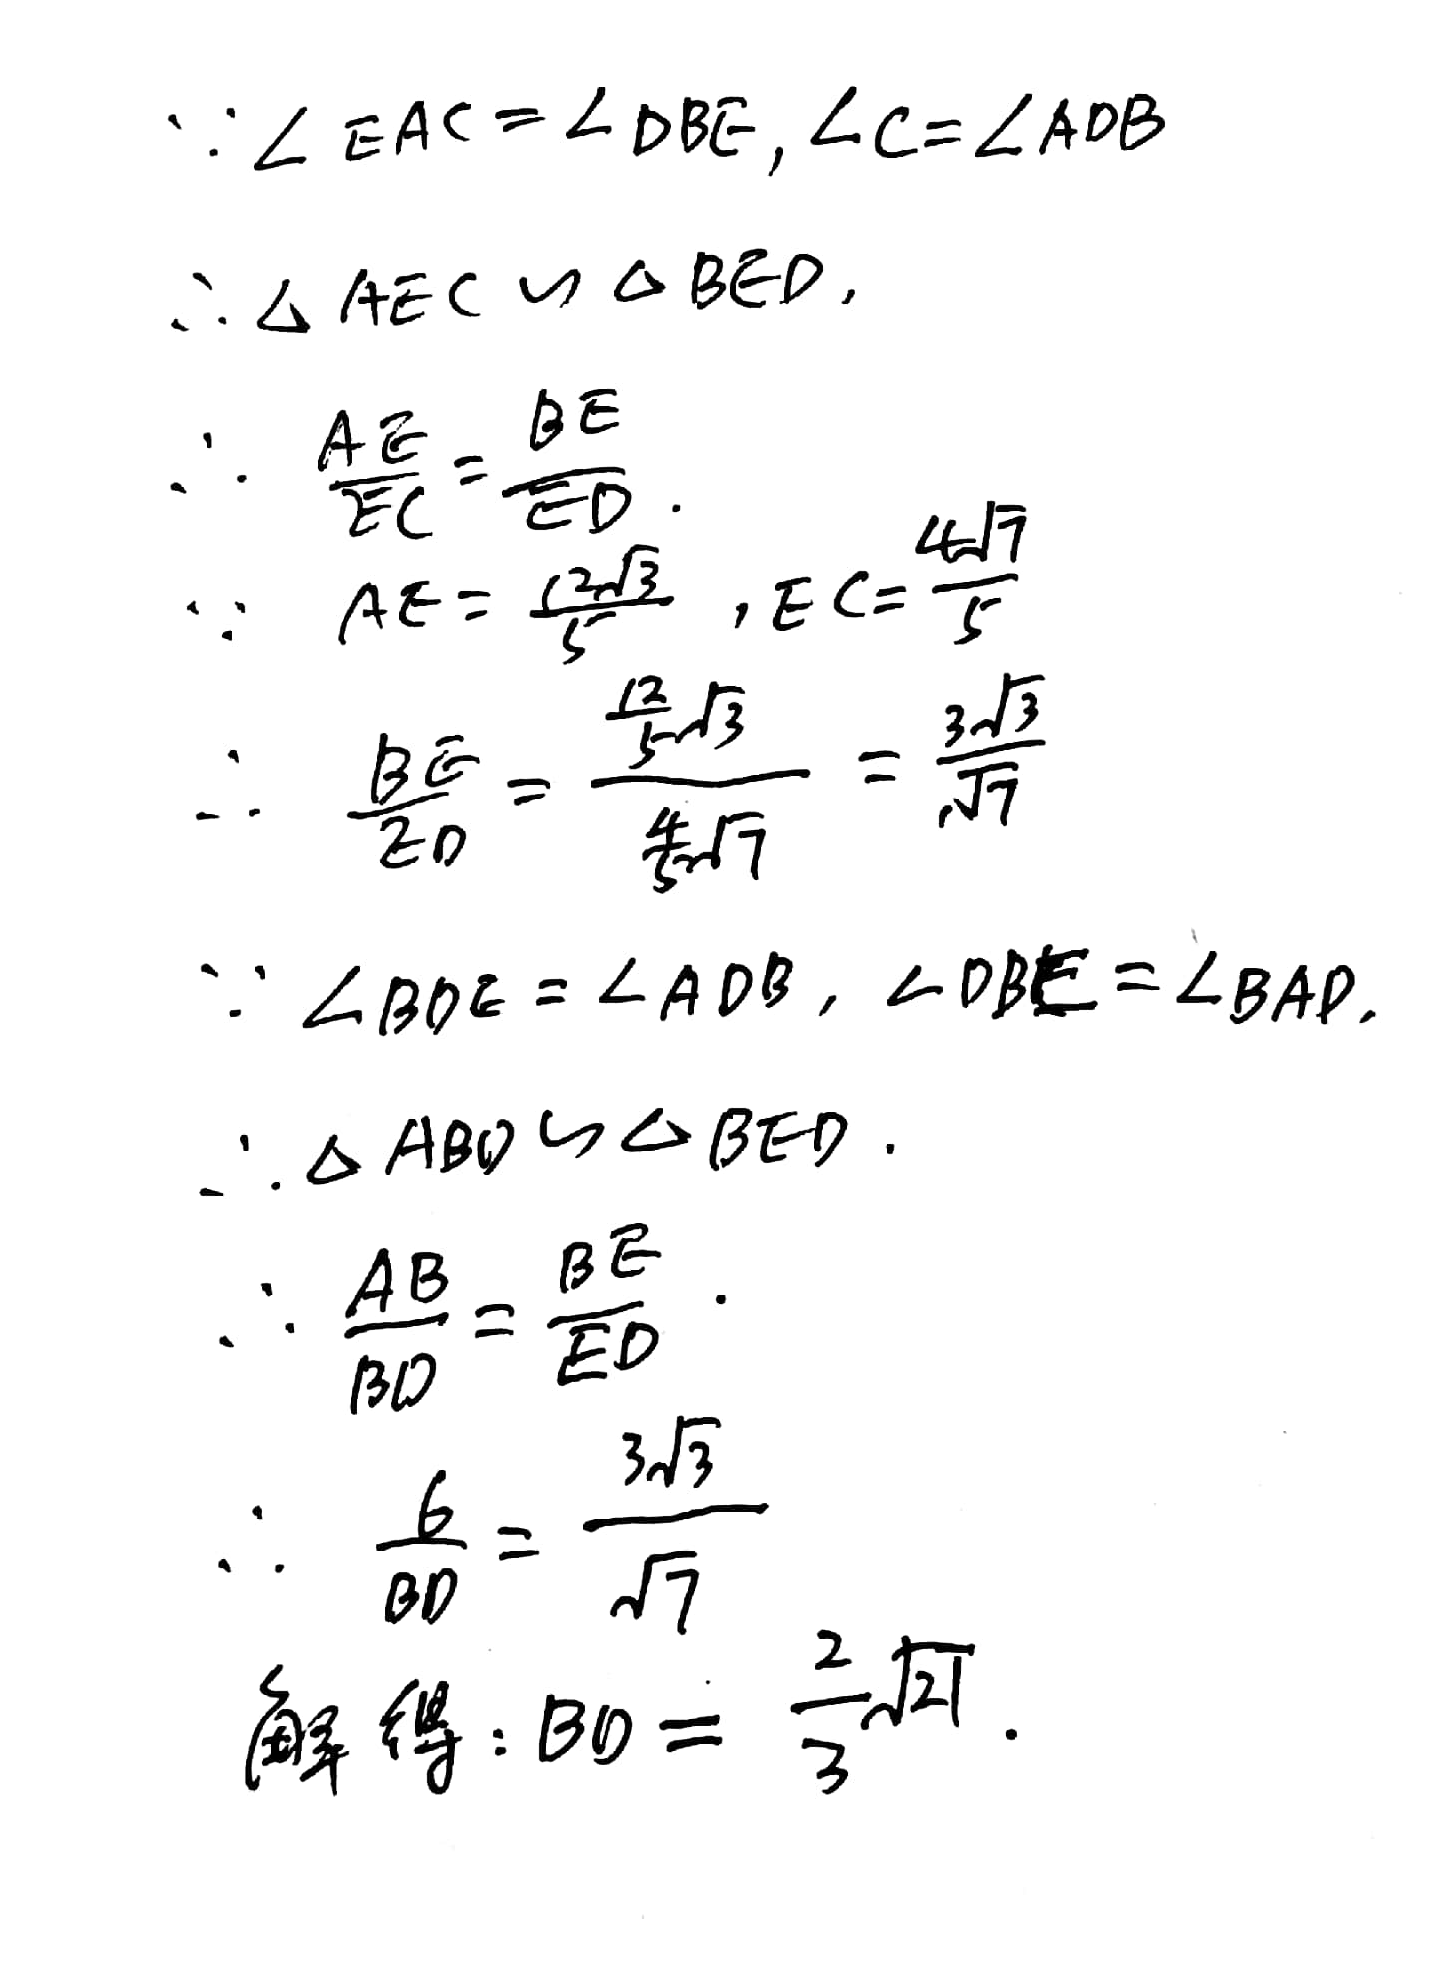 ∵∠EAC=∠DBE,∠C=∠ADB
∴△AEC∽△BED,
∴ AE/EC = BE/ED.
∵ AE = 12√3/5 , EC = 4√7/5
∴ BE/ED = (12/5 √3)/(4/5 √7) = 3√3/√7
∵∠BDE=∠ADB,∠DBE=∠BAD.
∴△ABD∽△BED.
∴ AB/BD = BE/ED.
∴ 6/BD = 3√3/√7
解得:BD = 2/3 √21.